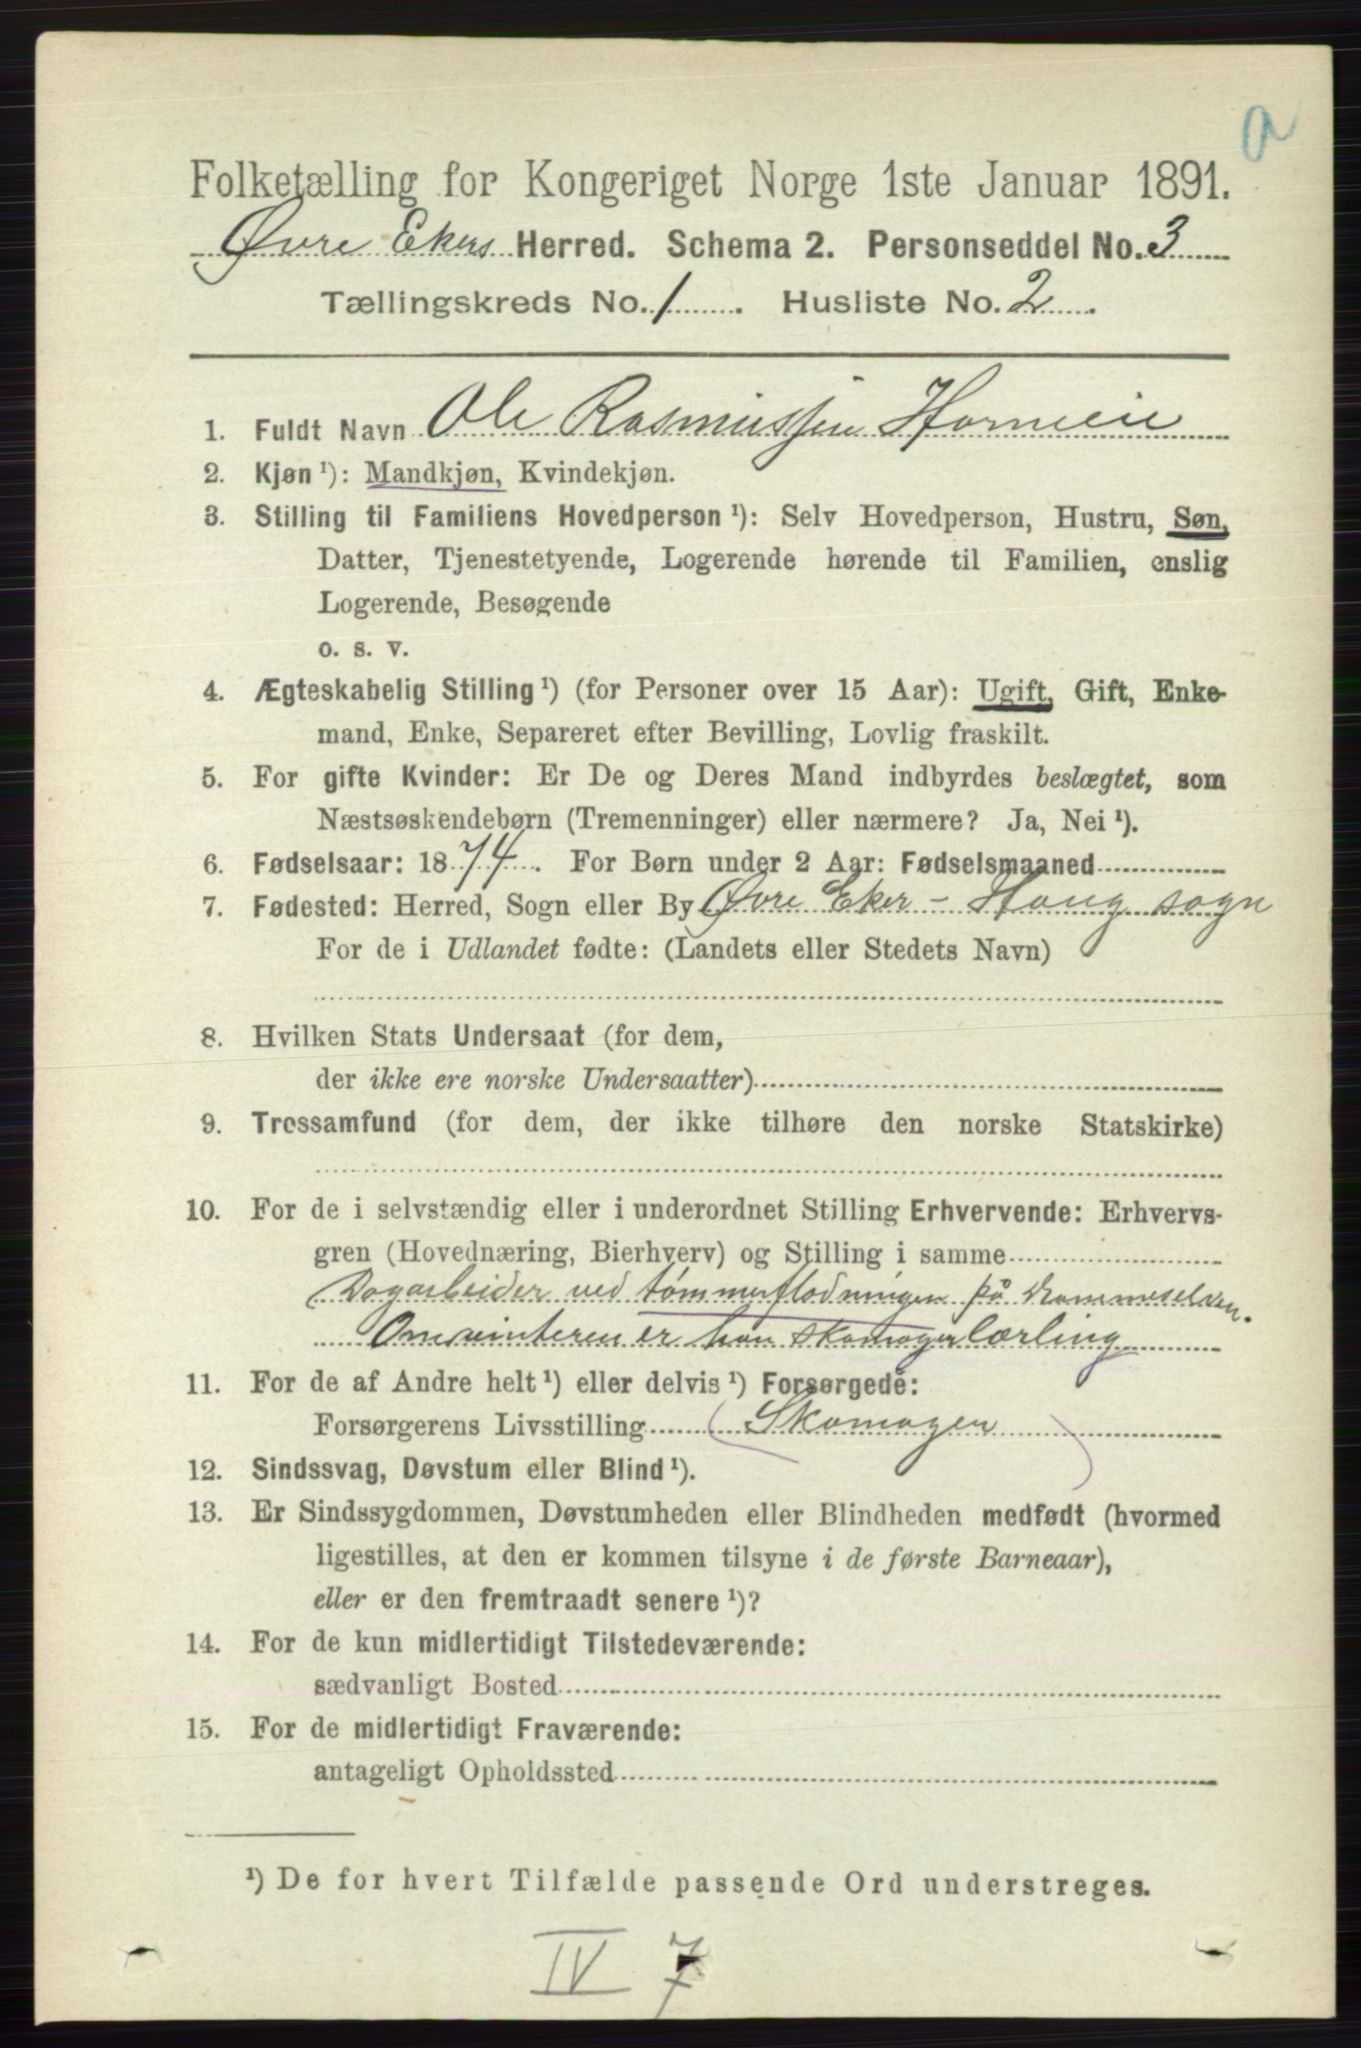 a
Folketælling for Kongeriget Norge 1ste Januar 1891.
Øvre Ekers Herred. Schema 2. Personseddel No. 3
Tællingskreds No. 1. Husliste No. 2.
1. Fuldt Navn Ole Rasmussen Horneie
2. Kjøn ¹): Mandkjøn, Kvindekjøn.
3. Stilling til Familiens Hovedperson ¹): Selv Hovedperson, Hustru, Søn,
Datter, Tjenestetyende, Logerende hørende til Familien, enslig
Logerende, Besøgende
o. s. v.
4. Ægteskabelig Stilling ¹) (for Personer over 15 Aar): Ugift, Gift, Enke-
mand, Enke, Separeret efter Bevilling, Lovlig fraskilt.
5. For gifte Kvinder: Er De og Deres Mand indbyrdes beslægtet, som
Næstsøskendebørn (Tremenninger) eller nærmere? Ja, Nei ¹).
6. Fødselsaar: 1874. For Børn under 2 Aar: Fødselsmaaned
7. Fødested: Herred, Sogn eller By Øvre Eker - Haug sogn
For de i Udlandet fødte: (Landets eller Stedets Navn)
8. Hvilken Stats Undersaat (for dem,
der ikke ere norske Undersaatter)
9. Trossamfund (for dem, der ikke tilhøre den norske Statskirke)
10. For de i selvstændig eller i underordnet Stilling Erhvervende: Erhvervs-
gren (Hovednæring, Bierhverv) og Stilling i samme
Dagarbeider ved tømmerflødningen på Drammeselven.
Om vinteren er han skomagerlærling
11. For de af Andre helt ¹) eller delvis ¹) Forsørgede:
Forsørgerens Livsstilling (Skomager)
12. Sindssvag, Døvstum eller Blind ¹).
13. Er Sindssygdommen, Døvstumheden eller Blindheden medfødt (hvormed
ligestilles, at den er kommen tilsyne i de første Barneaar),
eller er den fremtraadt senere ¹)?
14. For de kun midlertidigt Tilstedeværende:
sædvanligt Bosted
15. For de midlertidigt Fraværende:
antageligt Opholdssted
¹) De for hvert Tilfælde passende Ord understreges.
IV 7